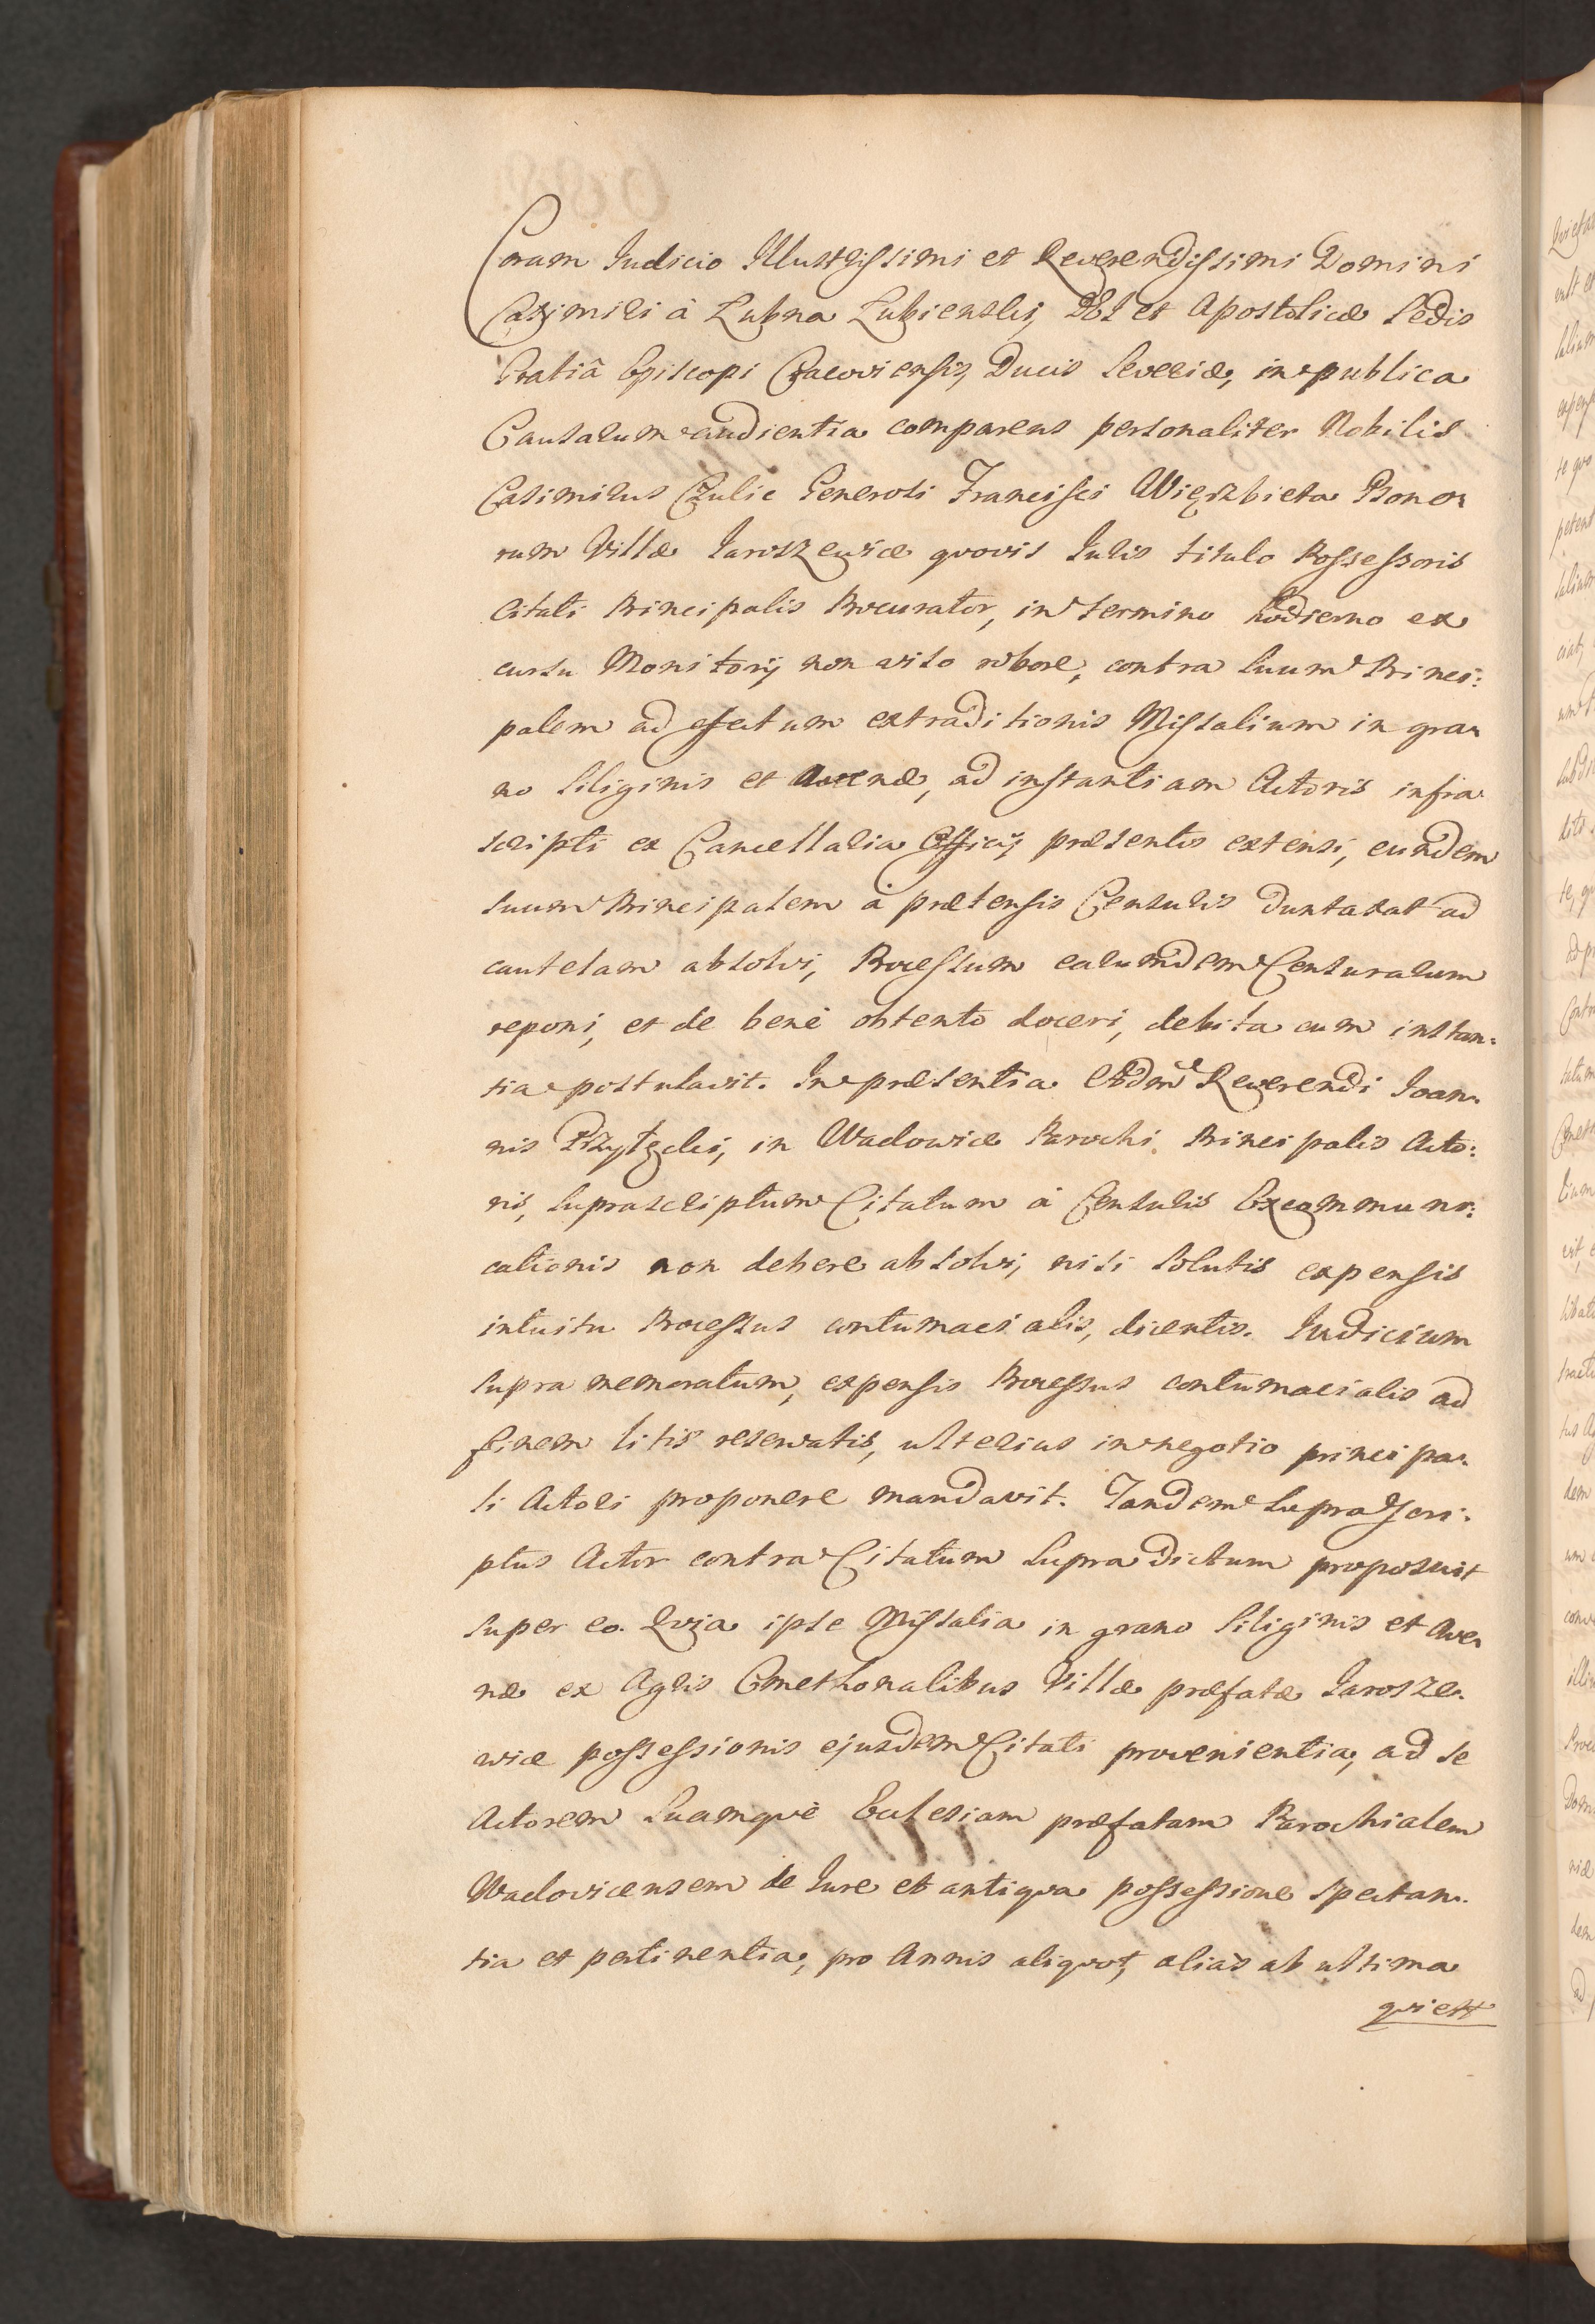 Coram Judicio Illustrissimi et Reverendissimi Domini
Casimiri à Łubna Łubienski, DEI et Apostolicæ Sedis
Gratiâ Episcopi Cracoviensis, Ducis Severiæ, in publica
Causarum audientia comparens personaliter Nobilis
Casimirus Czulic Generosi Francisci Wierzbieta Bono-
rum Villæ Jaroszewicæ quovis Juris titulo Possessoris
Citati Principalis Procurator, in termino hodierno ex
cursu Monitorij non viso robore, contra Suum Princi:
palem ad effectum extraditionis Missalium in gra-
no Siliginis et Avenæ, ad instantiam Actoris infra
scripti ex Cancellaria Officij præsentis extensi, eundem
Suum Principalem à prætensis Censuris duntaxat ad
cautelam absolvi, Processum earumdem Censurarum
reponi, et de benè obtento doceri, debita cum instan:
tia postulavit. In præsentia Admo Reverendi Joan-
nis Przytęcki, in Wadowice Parochi Principalis Acto:
ris, Suprascriptum Citatum à Censuris Excommuni:
cationis non debere absolvi, nisi Solutis expensis
intuitu Processus contumacialis, dicentis. Judicium
Supra memoratum, expensis Processus contumacialis ad
finem litis reservatis, ulterius in negotio principa-
li Actori proponere mandavit. Tandem Suprascri-
ptus Actor contra Citatum Supradictum proposuit
Super eo. Quia ipse Missalia in grano Siliginis et Ave-
næ ex Agris Cmethonalibus Villæ præfatæ Jarosze-
wicæ possessionis ejusdem Citati provenientia, ad se
Actorem Suamquè Ecclesiam præfatam Parochialem
Wadovicensem de Jure et antiqua possessione Spectan-
tia et pertinentia, pro Annis aliquot, alias ab ultima
quiett